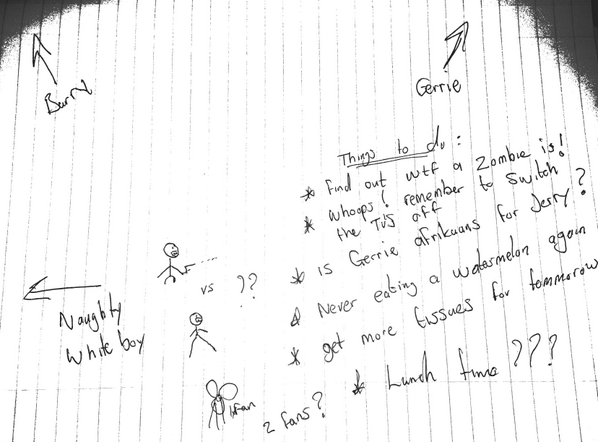 Barry
Gerrie
Things to do:
* Find out wtf a Zombie is!
* whoops! remember to switch
the TV's off
* is Gerrie afrikaans for Jerry?
* Never eating a watermelon again
* get more tissues for tommorow
* Lunch time ???
vs ??
Naughty
White boy
1 fan
2 fans?